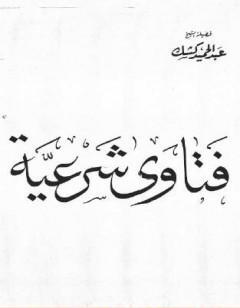 فضيلة الشيخ
عبد الحميد كشك
فتاوى شرعية